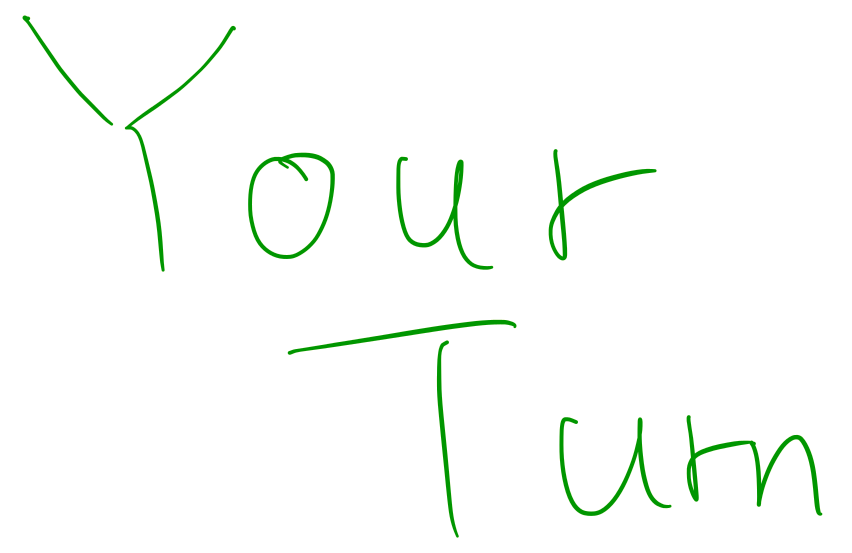 Your
Turn